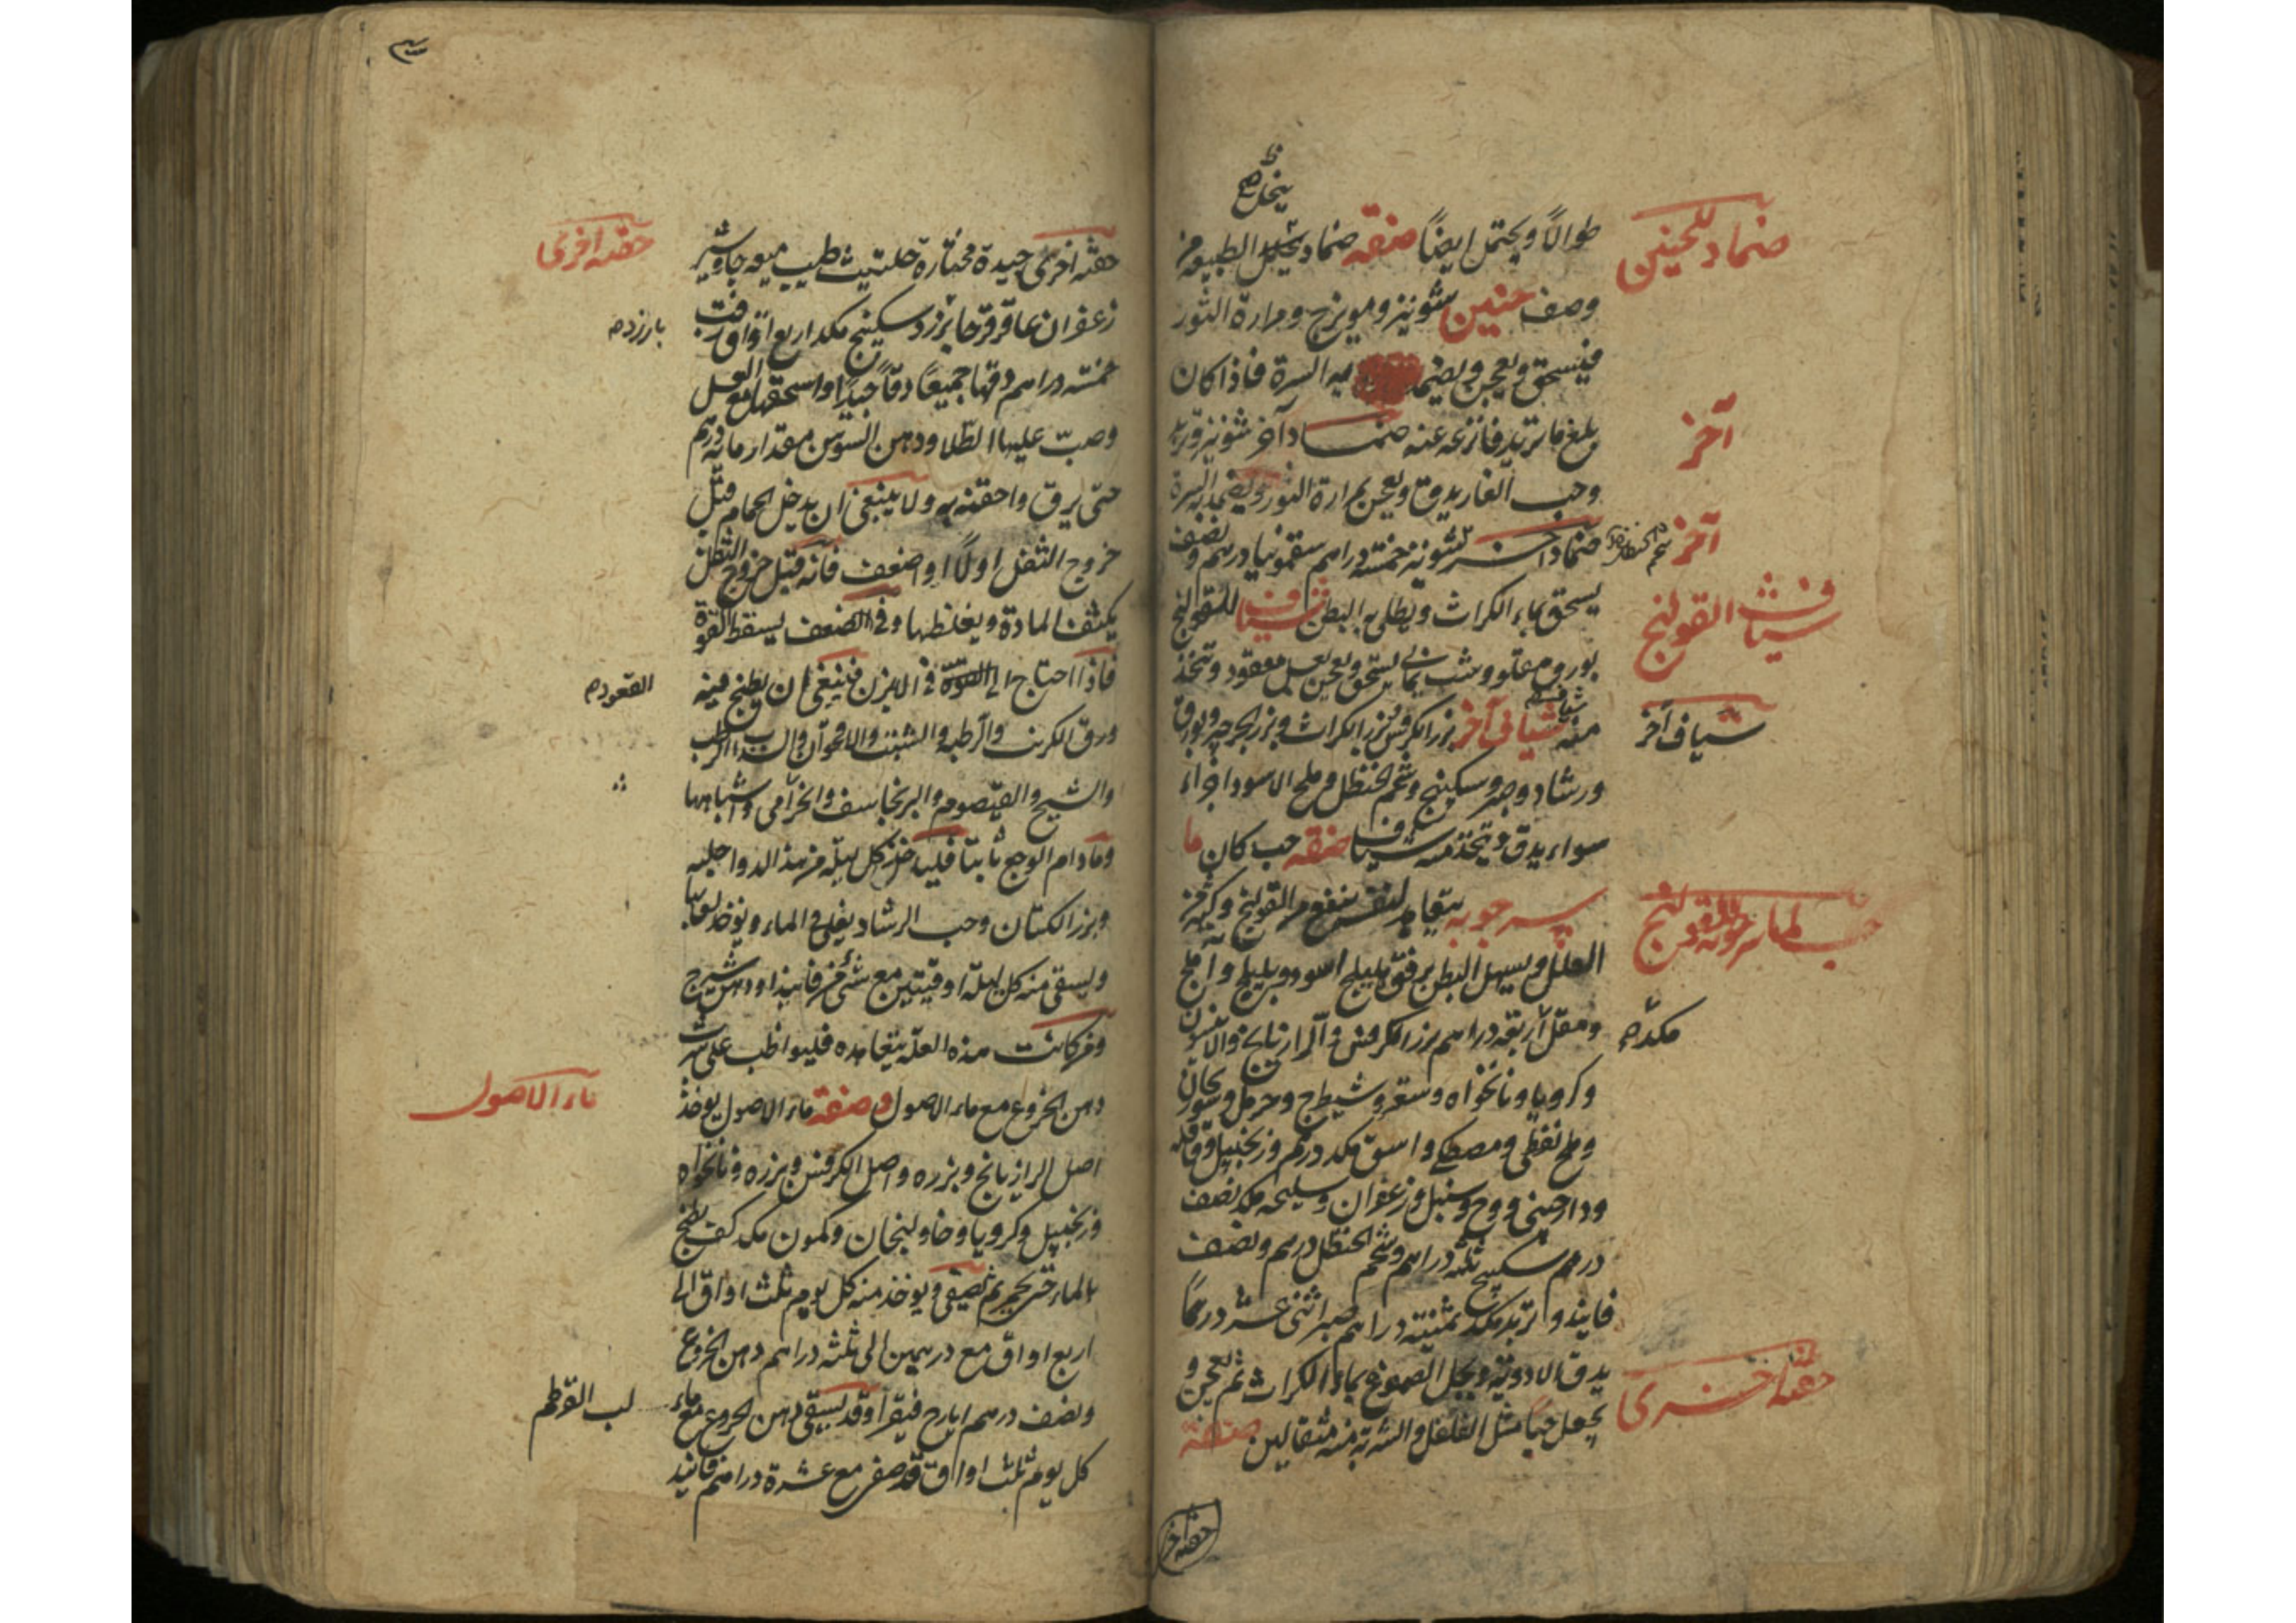 ينحل صح
ضماد للحنين
طوالاً ويحتمل ايضاً صفة ضماد يحيل الطبيعة من
وصف حنين شونيز وميويزج ومرارة الثور
فيسحق ويعجن ويضمد به السرة فاذا كان
آخر
وبلغ ما تريد فانزعه عنه ضماد آخر شونيز وزبد
وحب الغار يدق ويعجن بمرارة الثور ويضمد به السرة
آخر
شحم الحنظل
ضماد آخر شونيز خمسة دراهم سقمونيا درهم ونصف
شياف القولنج
يسحق بماء الكراث ويطلى به البطن شياف للقولنج
بورق مغلو وشب يماني يسحق ويعجن بعسل معقود وتتخذ
شياف آخر
منه شيافة شياف آخر بزر الكرفس بزر الكراث وبزر الجرجير وبورق
ورشاد وصبر وسكبينج وشحم الحنظل وملح الاسود اجزاء
سواء يدق ويتخذ منه شياف صفة حب كان ما
حب لماسرجويه للقولنج
سرجويه يتعاهد لنفسه ينفع من القولنج وكثير من
العلل ويسهل البطن برفق هليلج اسود وبليلج وآملج
مكد
ومقل اربعة دراهم بزر الكرفس والرازيانج والانيسون
وكرويا ونانخواه وسعتر وشيطرج وحرمل وسورنجان
وملح نفطي ومصطكي واسق مكد درهم وزنجبيل وقاقلة
ودارصيني ووج وسنبل وزعفران وسليخه مكد نصف
درهم سكبينج ثلثة دراهم وشحم الحنظل درهم ونصف
فانيذ وتربد مكد ثمنية دراهم صبر اثنى عشر درهماً
يدق الادوية ويحل الصموغ بماء الكراث ثم يعجن و
حقنة اخرى
يجعل حباً مثل الفلفل والشربة منه مثقالين صفة
حقنة اخر
حقنة اخرى
حقنة اخرى جيدة مختارة حلتيت طيب ميعه جاوشير
بارزد
زعفران عاقرقرحا بزرد سكبينج مكد اربع اواق زفت
خمسة دراهم دقها جميعاً دقاً جيداً واسحقها مع العسل
وصب عليها الطلا ودهن السوسن مقدار مائة درهم
حتى يرق واحقنه به ولا ينبغي ان يدخل الحمام قبل
خروج الثفل اولاً او اضعف فانه قبل خروج الثفل
يكثف المادة ويغلظها وفي الضعف يسقط القوة
القعود
فاذا احتاج الى القوة في الابزن فينبغي ان يطبخ فيه
ورق الكرنب والرطبة والشبث والاقحوان والسذاب الرطب
والشيح والقيصوم والبرنجاسف والخزامى واشباهها
وما دام الوجع ثابتاً فلياخذ كل ليلة من هذا الدوا حلبه
وبزر الكتان وحب الرشاد يغلى في الماء ويوخذ لعابها
ويسقى منه كل ليلة اوقيتين مع شئ من فانيذ او دهن شيرج
ومن كانت هذه العلة يتعاهده فليواظب على شرب
ماء الاصول
دهن الخروع مع ماء الاصول وصفة ماء الاصول يوخذ
اصل الرازيانج وبزره واصل الكرفس وبزره ونانخواه
وزنجبيل وكرويا وخاولنجان وكمون مكد كف يطبخ
بالماء حتى يحمر ثم يصفى ويوخذ منه كل يوم ثلث اواق الى
اربع اواق مع درهمين الى ثلثة دراهم دهن الخروع
لب القرطم
ونصف درهم ايارج فيقرا وقد يسقى دهن الخروع مع ماء
كل يوم ثلث اواق قد صفى مع عشرة دراهم فانيذ